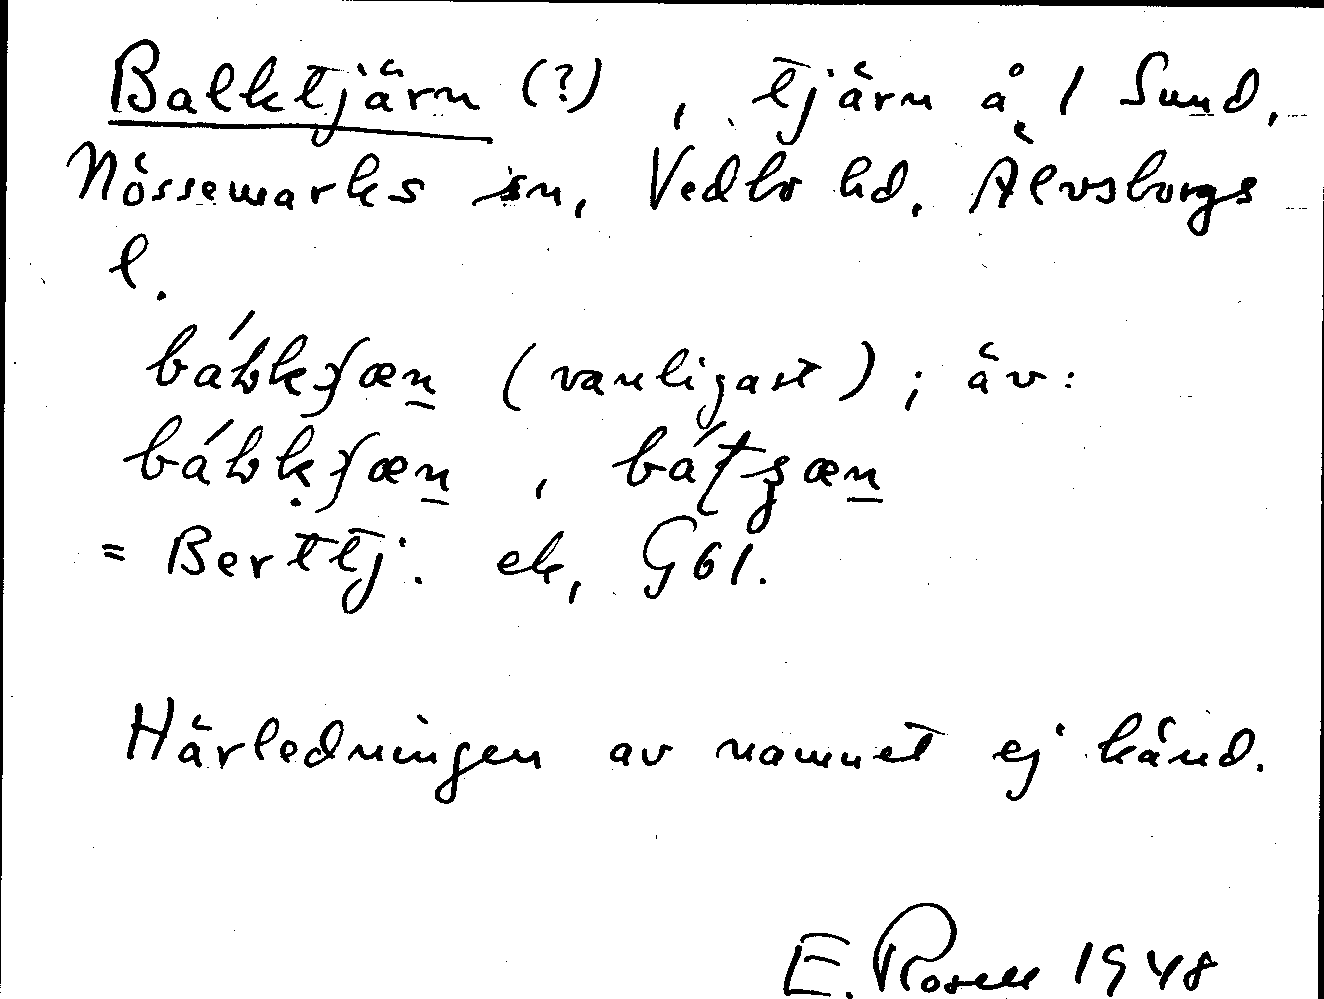 Balktjärn (?) , tjärn å 1 Sund,
Nössemarks sn, Vedbo hd, Älvsborgs
l.
(vanligast) ; äv:
,
= Berttj. ek, G61.
Härledningen av namnet ej känd.
E. Rosell 1948